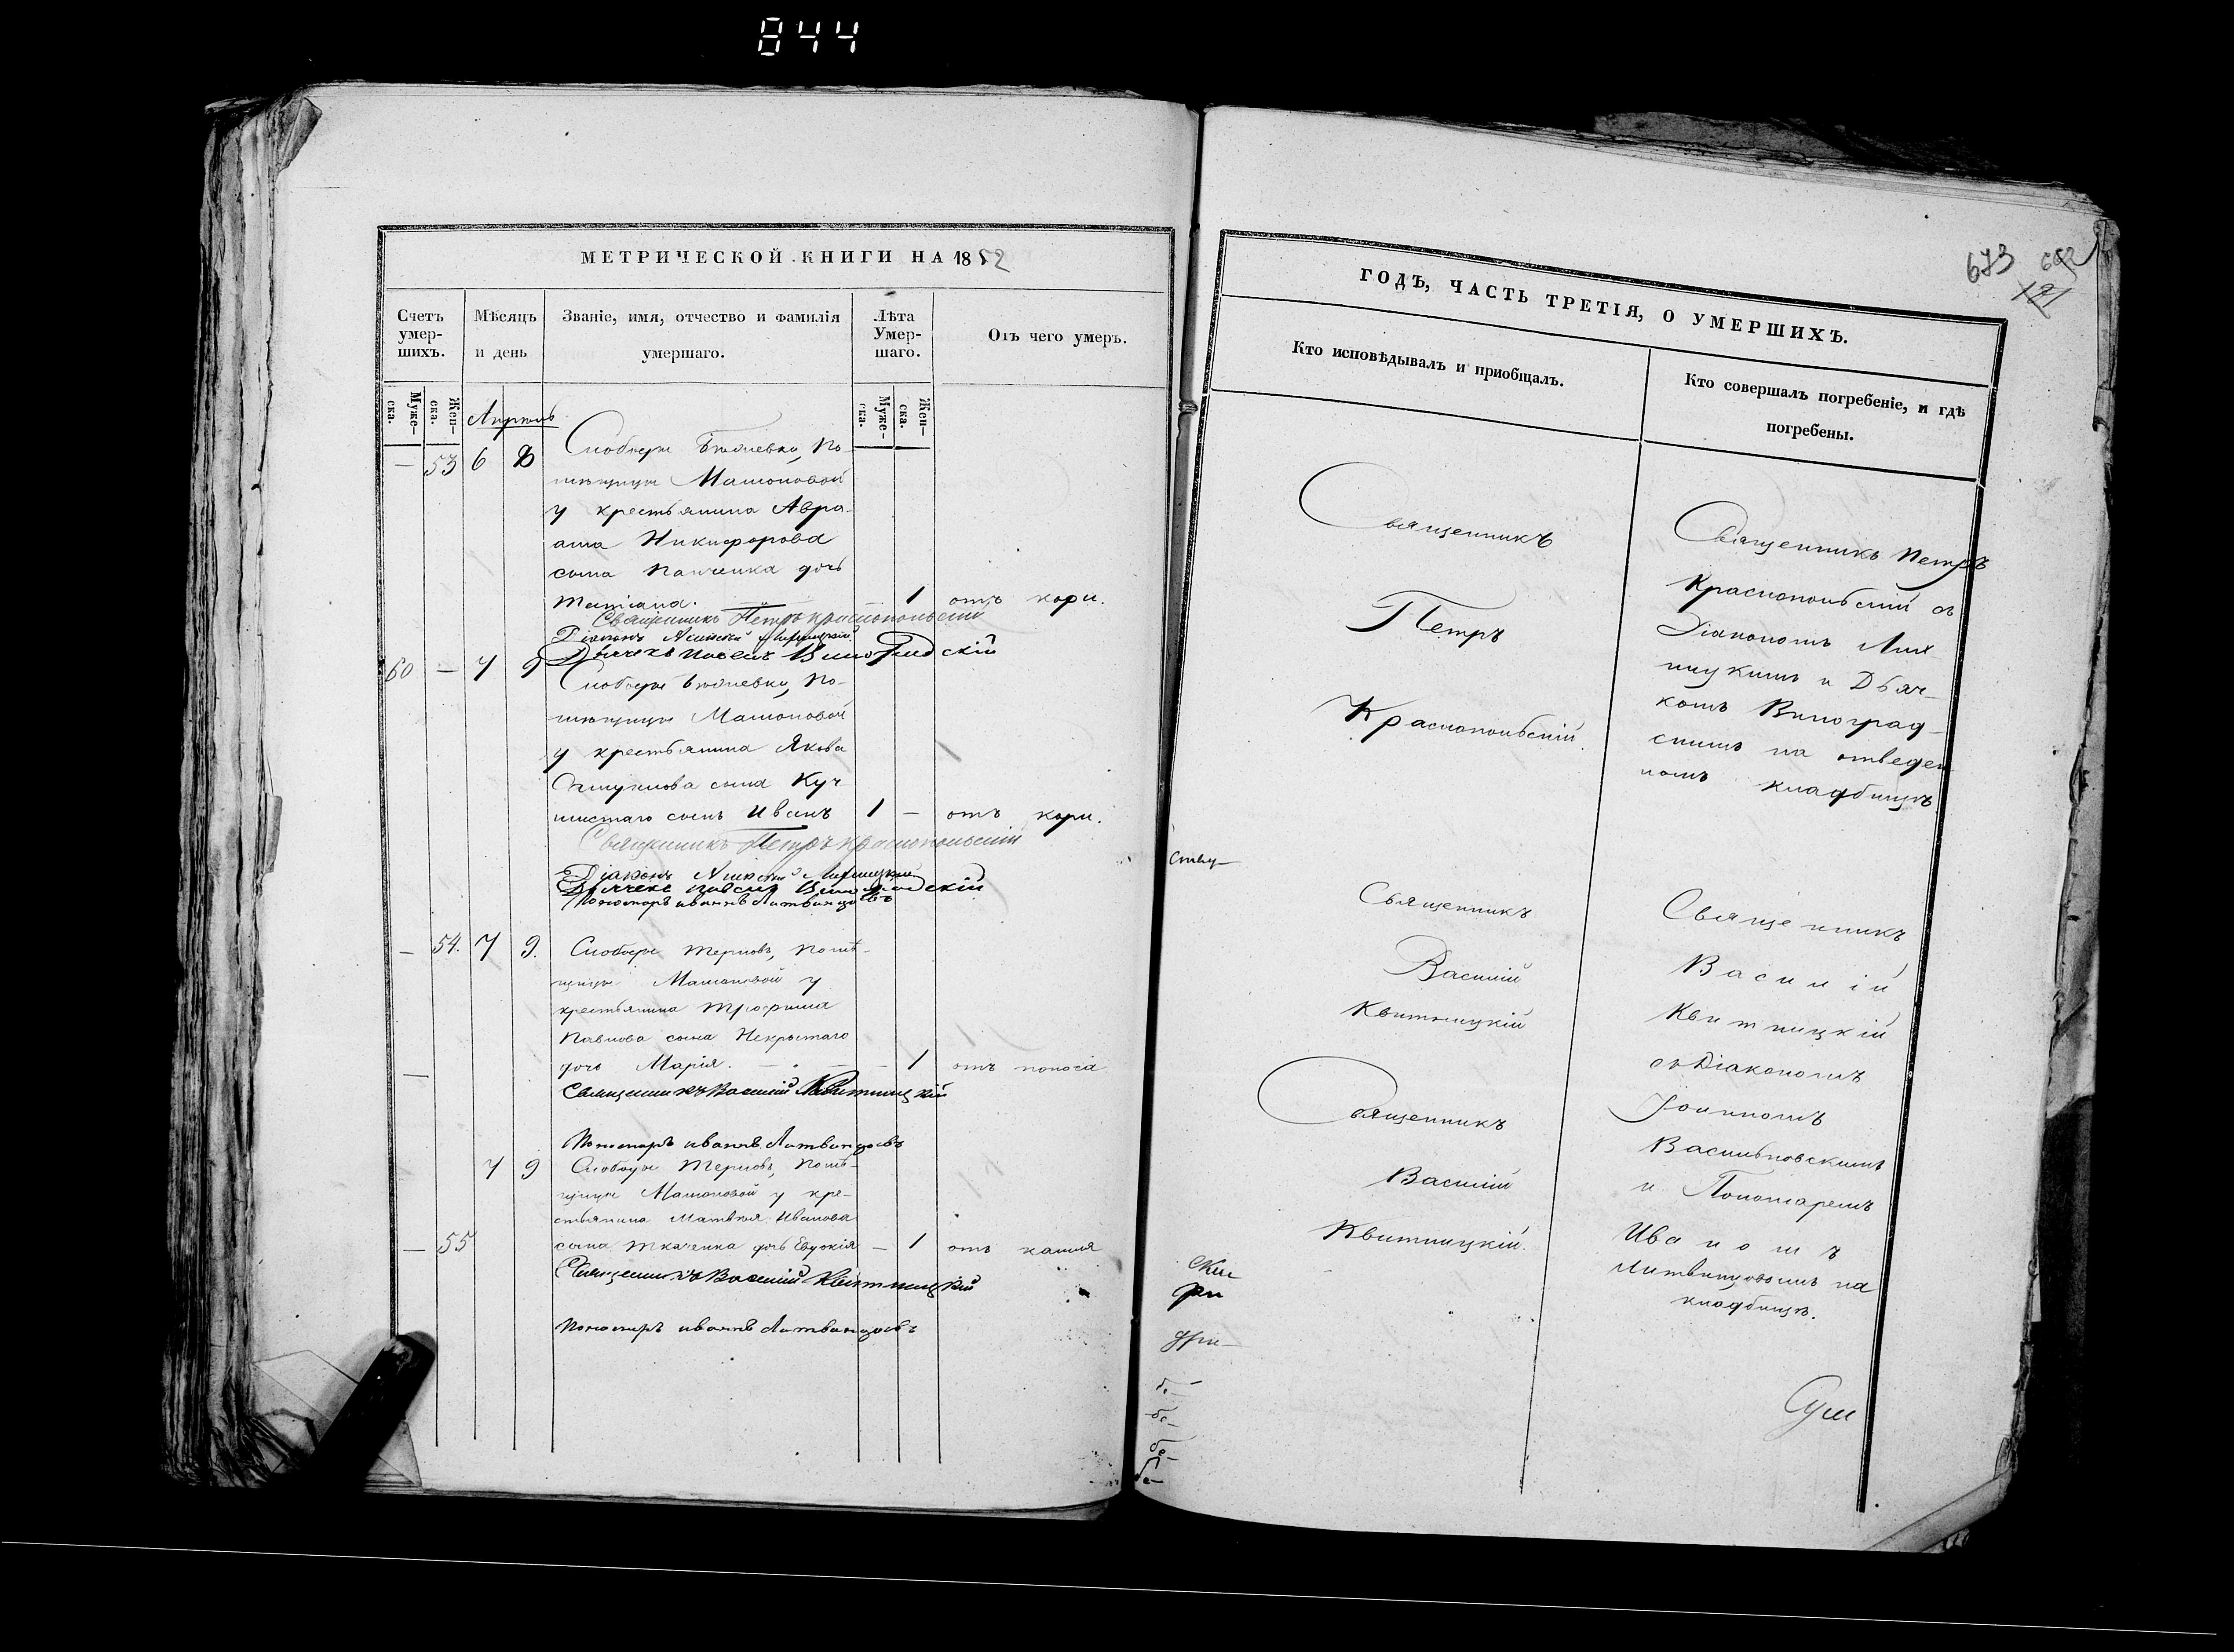 844
МЕТРИЧЕСКОЙ КНИГИ НА 1852
Счетъ умер-шихъ.
Мѣсяцъ и день
Званіе, имя, отчество и фамилія умершаго.
Лѣта Умер-шаго.
Отъ чего умеръ.
Муже-ска.
Жен-ска.
Муже-ска.
Жен-ска.
Апрѣль
— 53 6 8 Слободы по-
мѣщицы Матоновой
у крестьянина Авра-
ама Никифорова
сына Панченка дочь
Татіана. — 1 отъ кори.
Священникъ Петръ Краснопольскій
Діаконъ Алексѣй
Дьячекъ Виноградскій
60 — 7 9 Слободы по-
мѣщицы Матоновой
у крестьянина Якова
сына Куч-
мистаго сынъ Иванъ 1 — отъ кори.
Священникъ Петръ Краснопольскій
Діаконъ Алексѣй
Дьячекъ Виноградскій
Пономарь Иванъ Литвинцовъ
— 54. 7 9. Слободы Терновъ, помѣ-
щицы Матоновой у
крестьянина Трофима
Павлова сына Некрытаго
дочь Марія. — 1 отъ поноса
Священникъ Василій Квитницкій
Пономарь Иванъ Литвинцовъ
7 9 Слободы Терновъ, помѣ-
щицы Матоновой у кре-
стьянина Матвѣя Иванова
— 55 сына Ткаченка дочь Евдокія — 1 отъ кашля
Священникъ Василій Квитницкій
Пономарь Иванъ Литвинцовъ
673
121
ГОДЪ, ЧАСТЬ ТРЕТІЯ, О УМЕРШИХЪ.
Кто исповѣдывалъ и пріобщалъ.
Кто совершалъ погребеніе, и гдѣ погребены.
Священникъ
Петръ
Краснопольскій.
Священникъ Петръ
Краснопольскій съ
Діакономъ
и Дьяч-
комъ Виноград-
скимъ на отведен
номъ кладбищѣ
Священникъ
Василій
Квитницкій
Священникъ
Василій
Квитницкій.
Священникъ
Василій
Квитницкій
съ Діакономъ
Іоанномъ
Васильковскимъ
и Пономаремъ
Иваномъ
Литвинцовымъ на
кладбищѣ.